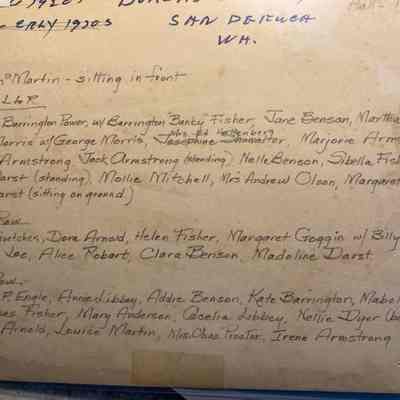 SAN DE FUCA
ERLY 1920S
WA.
Martin - sitting in front
L&R
Barrington Power, w/ Barrington "Banty" Fisher, Jane Benson, Martha
Morris w/ George Morris, Josephine Mrs. Ed, Marjorie Arm
Armstrong, Jack Armstrong (standing), Nelle Benson, Sibella Fish
arst (standing), Mollie Mitchell, Mrs Andrew Olson, Margaret
arst (sitting on ground)
Row
Dora Arnold, Helen Fisher, Margaret Goggin w/ Billy
Lee, Alice Robart, Clara Benson, Madeline Darst
ow.-
P. Engle, Annie Libbey, Addie Benson, Kate Barrington, Mabel
es Fisher, Mary Anderson, Cecelia Libbey, Nellie Dyer
Arnold, Louise Martin, Mrs. Chas Proctor, Irene Armstrong